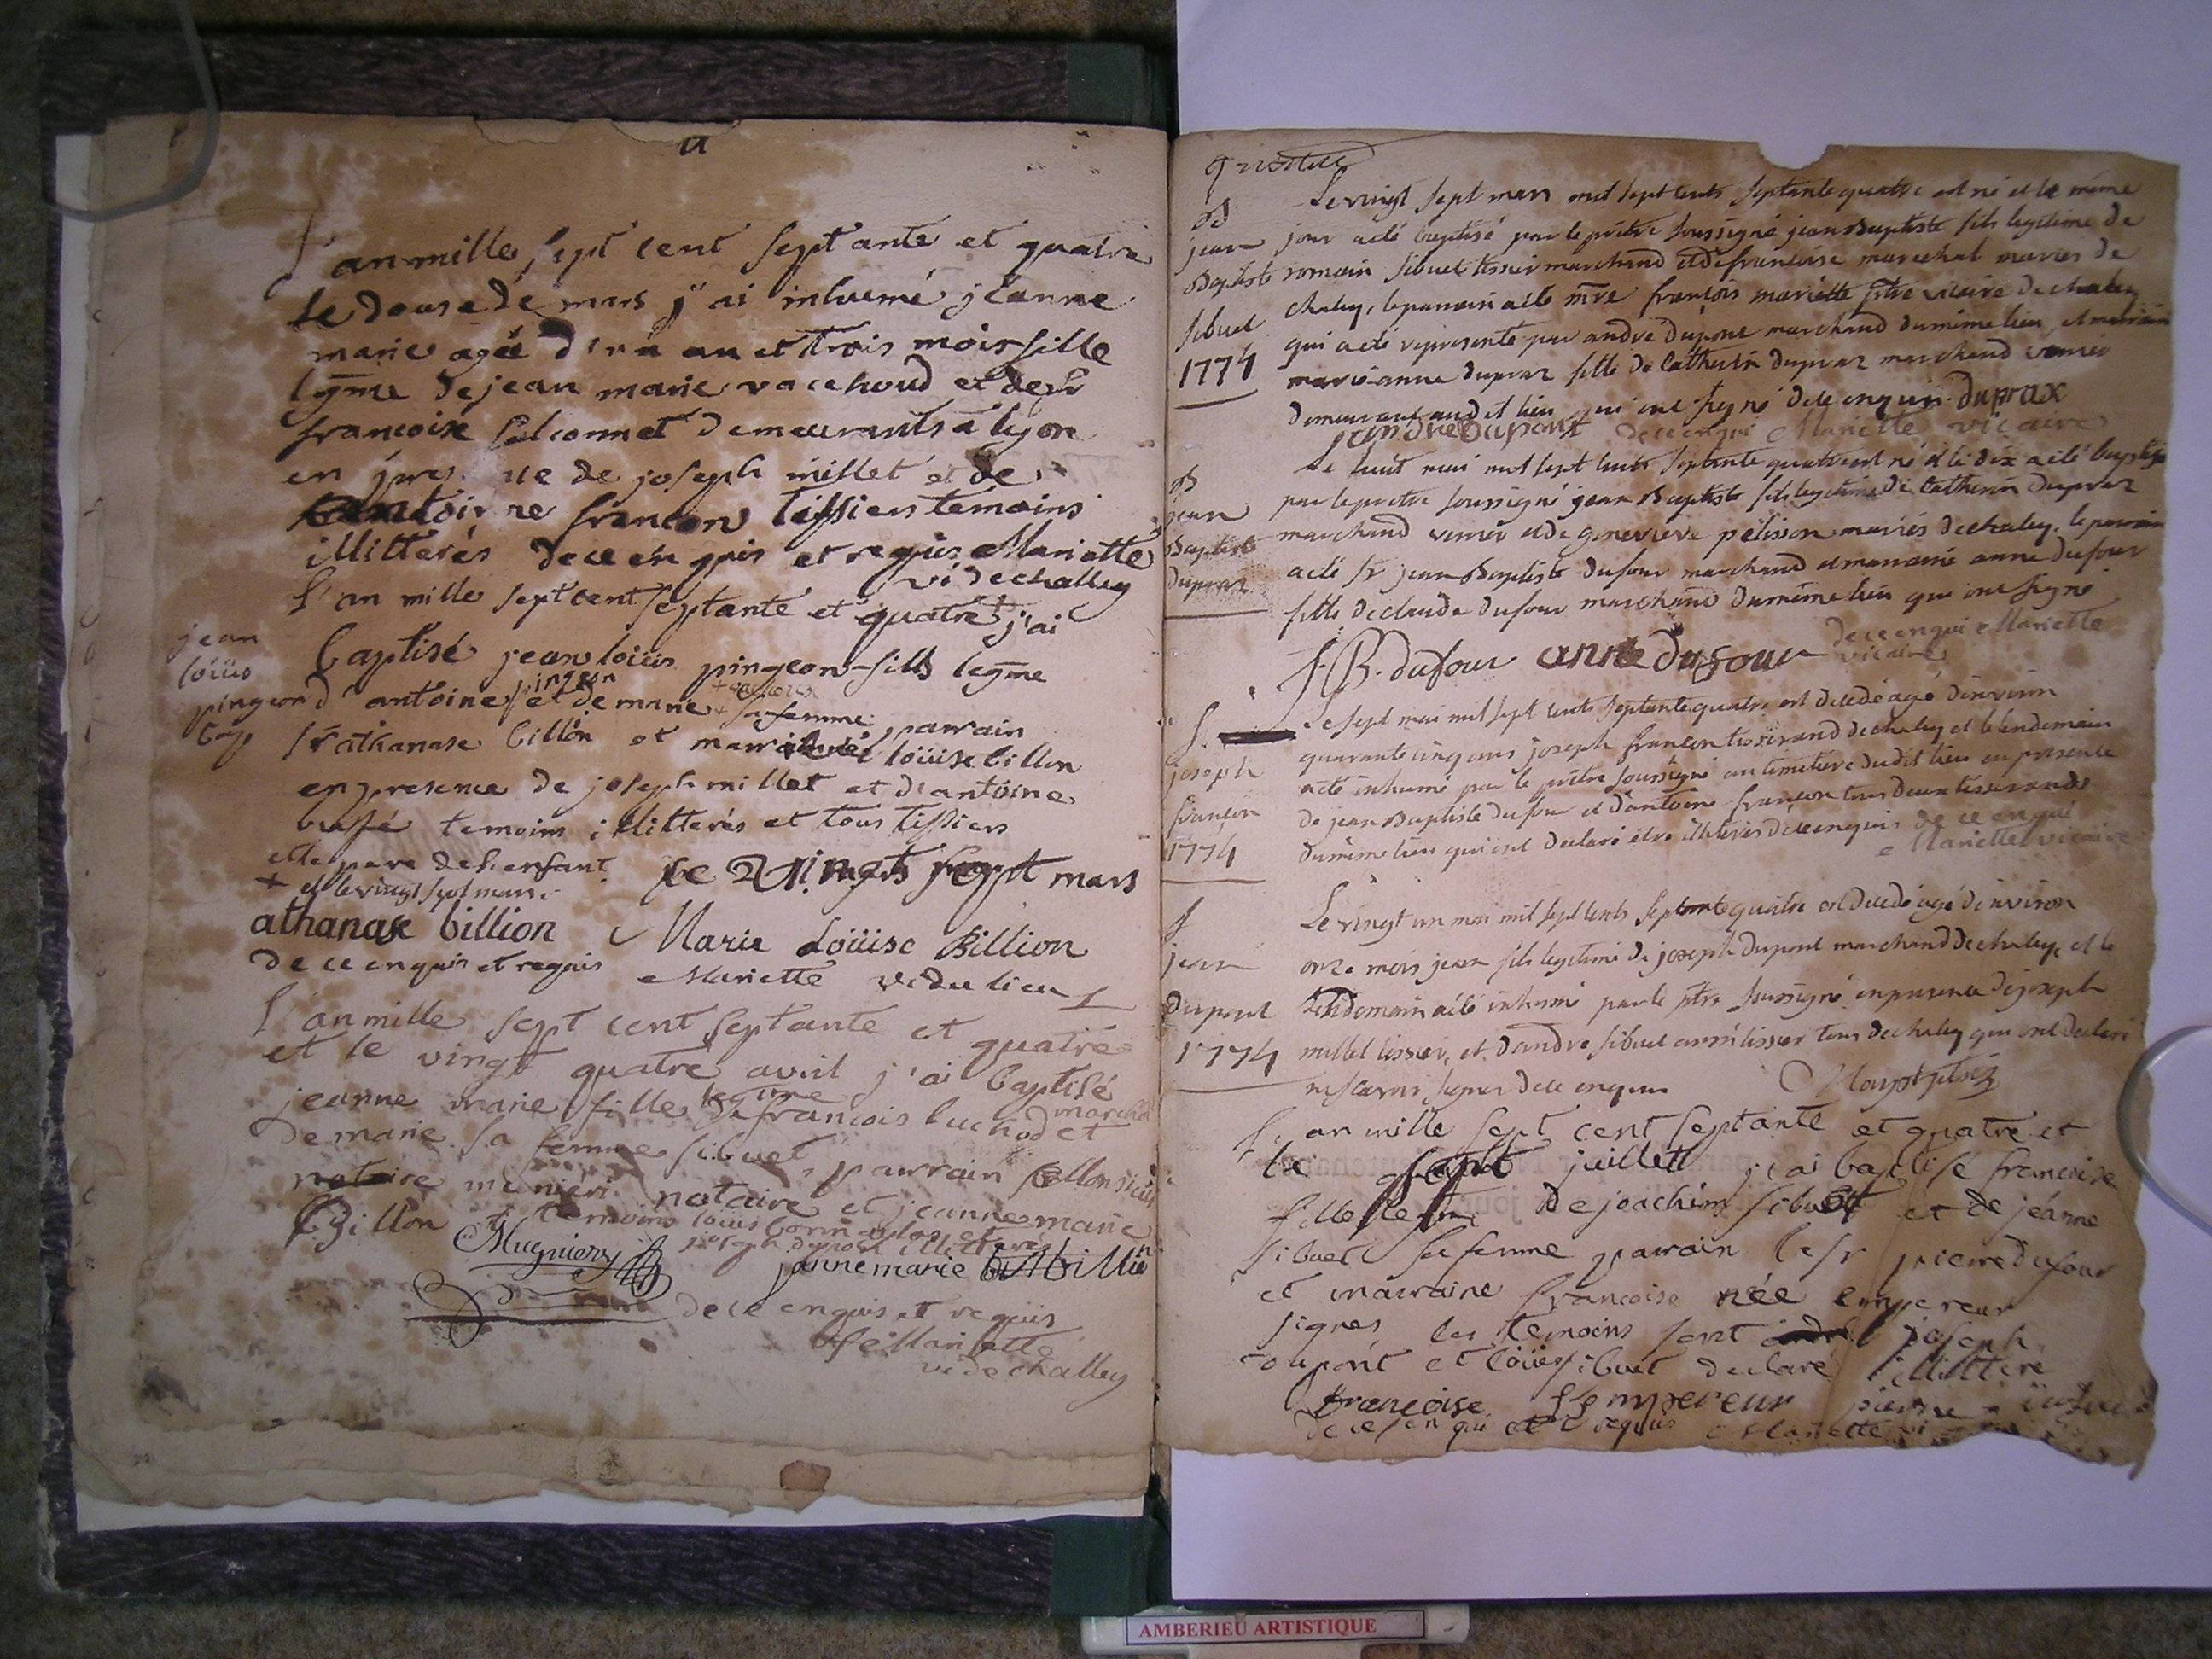 L'an mille sept cent septante et quatre
le douse de mars j'ai inhumé jeanne
marie agée d'un an et trois mois fille
lgme de jean marie vacehoud et de
francoise falconnet demeurants a lyon
en de joseph millet et de
antoine francon tissiers temoins
illitterés de ce enquis et requis Mariette
vi de challey
L'an mille sept cent septante et quatre + j'ai
jean
loüis
pingeon
bap
baptisé jean loüis pingeon fills legme
d'antoine pingeon et de marie sa femme, parrain
sr athanase billon et marraine loüise billon
en presence de joseph millet et d'antoine
temoins illitterés et tous tissiers
et le pere de l'enfant le vingt sept mars
+ et le vingt sept mars
athanase billion Marie Loüise Billion
de ce enquis et requis Mariette vi du lieu
L'an mille sept cent septante et quatre
et le vingt quatre avril j'ai baptisé
jeanne marie fille legitime de francois buchod et
de marie sa femme sibuet, parrain
notaire notaire et jeanne marie
Billon temoins loüis
joseph dupont illitterés
Mugniery janne marie billion
de ce enquis et requis
Mariette
vi de challey
B
jean
Baptiste
sibuet
1774
Le vingt sept mars mil sept cents septante quatre est né et le même
jour a eté baptisé par le prêtre soussigné jean Baptiste fils legitime de
romain sibuet tissier marchand et de francoise marechal mariés de
chaley, le parrain a eté mre françois mariette ptre vicaire de chaley
qui a eté representé par andré dupont marchand du même lieu, et marraine
marie anne dupraz fille de Catherin dupraz marchand
demeurant audit lieu qui ont signé de ce enquis. duprax
andré Dupont de ce enqui Mariette vicaire
B
jean
Baptiste
dupraz
Le huit mai mil sept cents septante quatre est né et le dix a eté baptisé
par le prêtre soussigné jean Baptiste fils legitime de Catherin dupraz
marchand et de genevieve pelisson mariés de chaley. le parrain
a eté sr jean Baptiste dufour marchand et marraine anne dufour
fille de claude dufour marchand du même lieu qui ont signé
J.B. dufour anne dufour de ce enqui Mariette
vicaire
S.
joseph
françon
1774
Le sept mai mil sept cents septante quatre est decedé agé d'environ
quarante cinq ans joseph françon tisserand de chaley et le lendemain
a eté inhumé par le prêtre soussigné au cimetiere dudit lieu en presence
de jean Baptiste dufour et d'antoine françon tous deux tisserands
du même lieu qui ont declaré être illiterés de ce enquis de ce enqui
Mariette vicaire
S
jean
dupont
1774
Le vingt un mai mil sept cents septante quatre est decedé agé d'environ
onze mois jean fils legitime de joseph dupont marchand de chaley, et le
lendemain a eté inhumé par le ptre soussigné en presence de joseph
millet tissier, et d'andré sibuet aussi tissier tous de chaley qui ont declaré
ne sçavoir signer de ce enquis
L'an mille sept cent septante et quatre et
le sept juillett j'ai baptisé francoise
fille legme de joachim sibuett et de jéanne
sibuet sa femme parrain le sr pierre dufour
et marraine francoise née empereur
signes les temoins sont joseph
dupont et loüis sibuet declaré illittere
françoise Lempereur pierre
de ce enqui et requis Mariette vi
AMBERIEU ARTISTIQUE